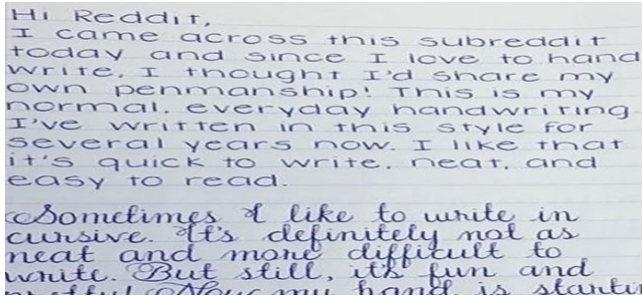 Hi Reddit,
I came across this subreddit
today and since I love to hand
write, I thought I'd share my
own penmanship! This is my
normal, everyday handwriting.
I've written in this style for
several years now. I like that
it's quick to write, neat, and
easy to read.
Sometimes I like to write in
cursive. It's definitely not as
neat and more difficult to
write. But still, it's fun and
pretty! Now my hand is starting